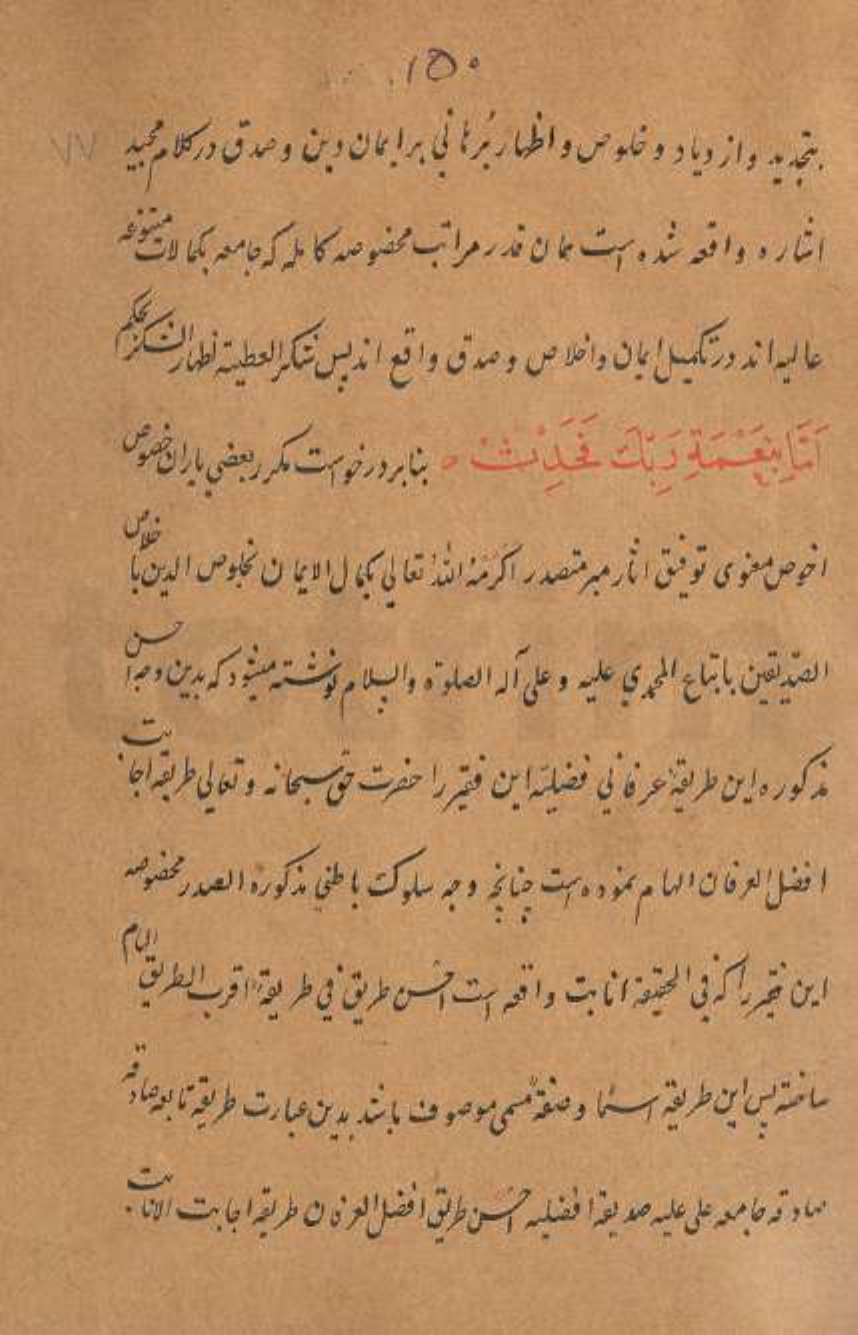 ۱۵۰
۷۷
بتجدید و ازدیاد و خلوص و اظهار بُرهانی بر ایمان دین و صدق در کلام مجید
اشاره واقعه شده است همان قدر مراتب مخصوصه کامله که جامعه بکمالات متنوعه
عالیه اند در تکمیل ایمان و اخلاص و صدق واقع اند پس شکر العطیته اظهار الشکر بحکم
اَمَّا بِنِعْمَةِ رَبِّكَ فَحَدِّثْ ه بنابر درخواست مکرر بعضی یاران خصوص
اخوص معنوی توفیق اثار میر متصدر اکرمهُ اللهُ تعالی بکمال الایمان بخلوص الدین باخلاص
الصّدیقین باتباع المحمدی علیه و علی آله الصلوة والسلام نوشته میشود که بدین وجه احسن
مذکوره این طریقهٔ عرفانی فضیلیّه این فقیر را حضرت حق سبحانه و تعالی طریقه اجابت
افضل العرفان الهام نموده است چنانچه وجه سلوک باطنی مذکوره الصدر مخصوصه
این فقیر را که فی الحقیقة انابت واقعه است احسن طریق فی طریقة اقرب الطریق الهام
ساخته پس این طریقه اسمًا و صفةً مسمی موصوف باشد بدین عبارت طریقه تابعه صادقه
صادقه جامعه علی علیه صدیقه افضلیه احسن طریق افضل العرفان طریقه اجابت الانابت